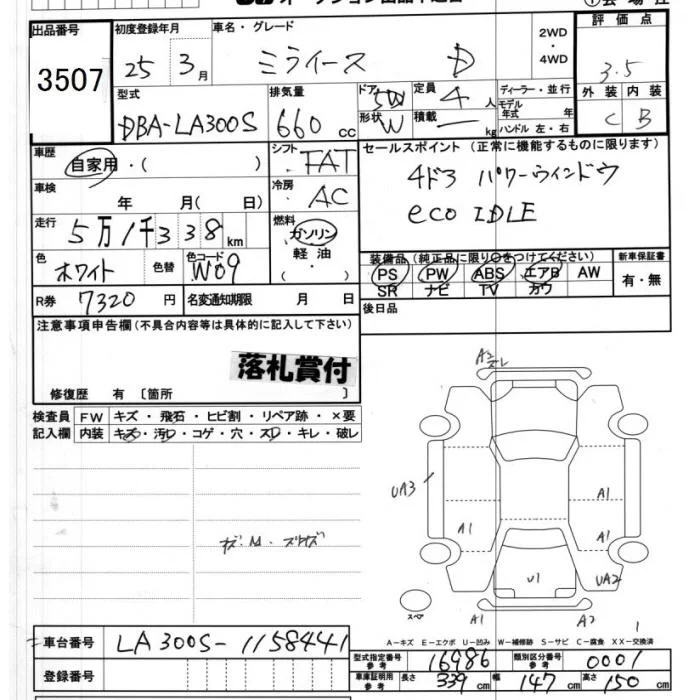 出品番号 初度登録年月 車名・グレード 2WD・4WD 評価点
3507 25年 3月 ミライース D 3.5
型式 排気量 ドア形状 定員 ディーラー・並行 外装 内装
DBA-LA300S 660cc 5W 4人 モデル年式 年 C B
積載 kg ハンドル 左・右
車歴 シフト セールスポイント (正常に機能するものに限ります)
自家用・( ) FAT 4ドア パワーウィンドウ
車検 年 月( 日) 冷房 AC eco IDLE
走行 5万1千338km 燃料 ガソリン・軽油・( )
色 ホワイト 色替 色コード W09
装備品 (純正品に限り○をつけてください) 新車保証書
PS PW ABS エアB AW 有・無
SR ナビ TV カワ
R券 7320円 名変通知期限 月 日 後日品
注意事項申告欄 (不具合内容等は具体的に記入して下さい)
落札賞付
修復歴 有 〔箇所 〕
検査員 FW キズ・飛石・ヒビ割・リペア跡・×要
記入欄 内装 キズ・汚レ・コゲ・穴・スレ・キレ・破レ
UA3
A1
A1
A1
U1
UA2
スペア
A1
A2
A-キズ E-エクボ U-凹み W-補修跡 S-サビ C-腐食 XX-交換済
車台番号 LA300S-1158441
登録番号
型式指定番号 参考 16986 類別区分番号 参考 0001
車庫証明用 参考 長さ 339cm 幅 147cm 高さ 150cm